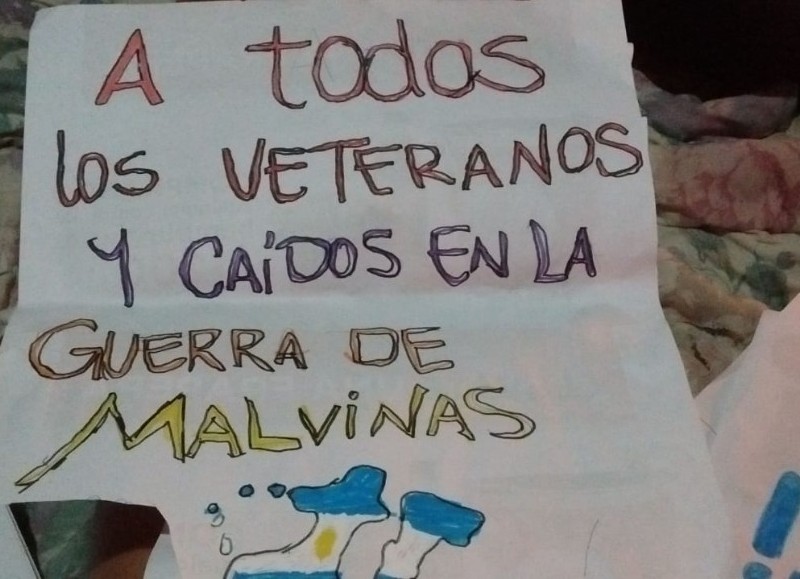 A todos
los VETERANOS
Y CAíDOS EN LA
GUERRA DE
MALViNAS